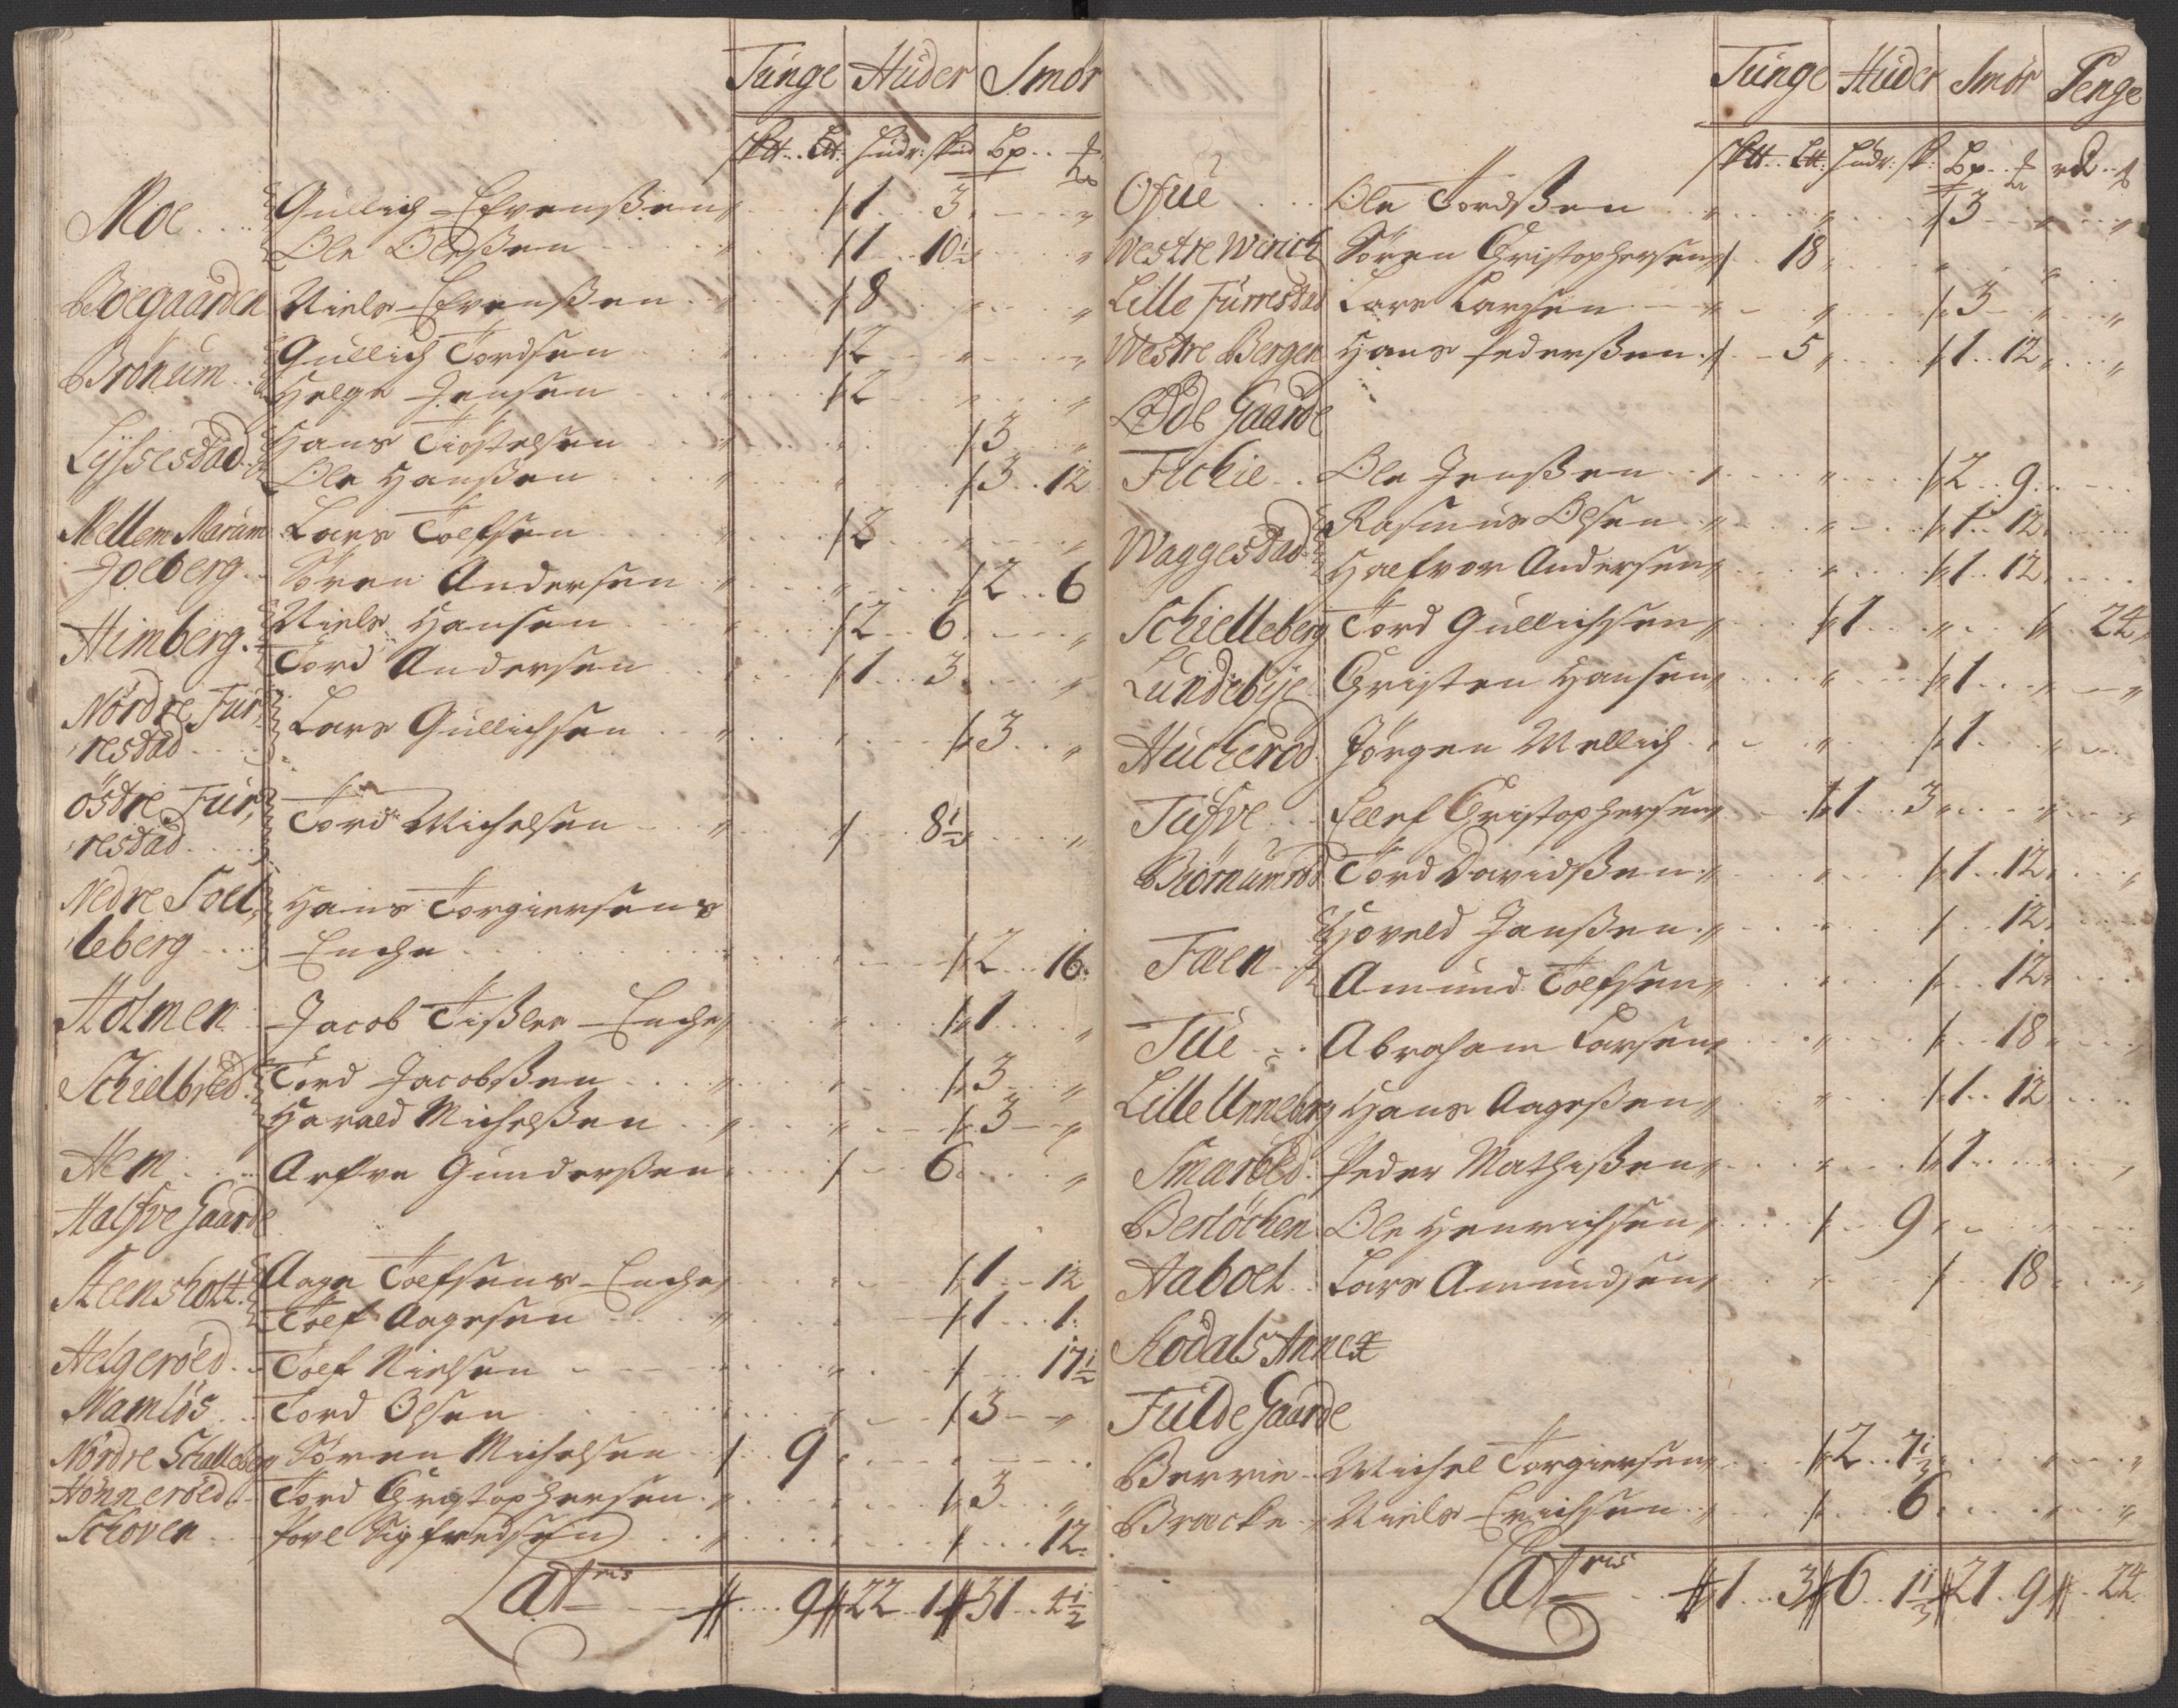 Tunge Huder Smör
Sktt. Ltt: Hudr: skind Lp.. ℔
Moe Gullich Efvenßen 1 3
Ole Olsßen 1 10½
Boegaarden Niels Efvenßen 8
Brönum Gullich Tordsen 2
Helge Jensen 2
Lyssestad Hans Tiostelsen 3
Ole Hanßen 3 12
Mellem Marum Lars Toefsen 3
Joeberg Sören Andersen 2 6
Himberg Niels Hansen 2 6
Tord Andersen 1 3
Nordre Fur,
restad Lars Gullichsen 3
östre Fur,
restad Tord Michelsen 8½
Nedre Soel, Hans Torgiersens
leberg Enche 2 16
Holmen Jacob Tißler Enche 1
Schielbred Tord Jacobßen 3
Harald Michelßen 3
Hem Arfve Gunderßen 6
Halfve Gaarde
Steensholt Aage Toefsens Enche 1 12
Toef Aagesen 1 1
Helgeröed Toef Nielsen 17½
Namlös Tord Olsen 3
Nordre Schalleberg Sören Michelsen 9
Hönneröed Tord Christophersen 3
Schoven Povl Sigfredsen 12
Latris 9 22 1 31 4½
Tunge Huder Smör Penge
Sktt. Ltt: Hudr: sk: Lp.. ℔ rd ß
Ofue Ole Tordßen 3
Westre Wirich Sören Christophersen 18
Lille Furrestad Lars Larsen 3
Westre Bergen Hans Pederßen 5 1 12
Öde Gaarde
Fichie Ole Jenßen 2 9
Waggestad Rasmus Olsen 1 12
Halfvor Andersen 1 12
Schielleberg Tord Gullichsen 1 24
Lundebÿe Christen Hansen 1
Hucheröd Jörgen Mellich 1
Tufve Ellef Christophersen 1 3
Brönumröd Tord Davidßen 1 12
Faen Hoveld Janßen 12
Amund Toefsen 12
Tue Abraham Larsen 18
Lille Unneberg Hans Aageßen 1 12
Smaröed Peder Mathißen 1
Berlöchen Ole Henrichsen 9
Aaboel Lars Amundsen 18
Kodals Annex
Fulde Gaarde
Berrie Michel Torgiersen 2 7½
Bracke Niels Erichsen 6
Latris 1 3 6 1½ 21 9 24